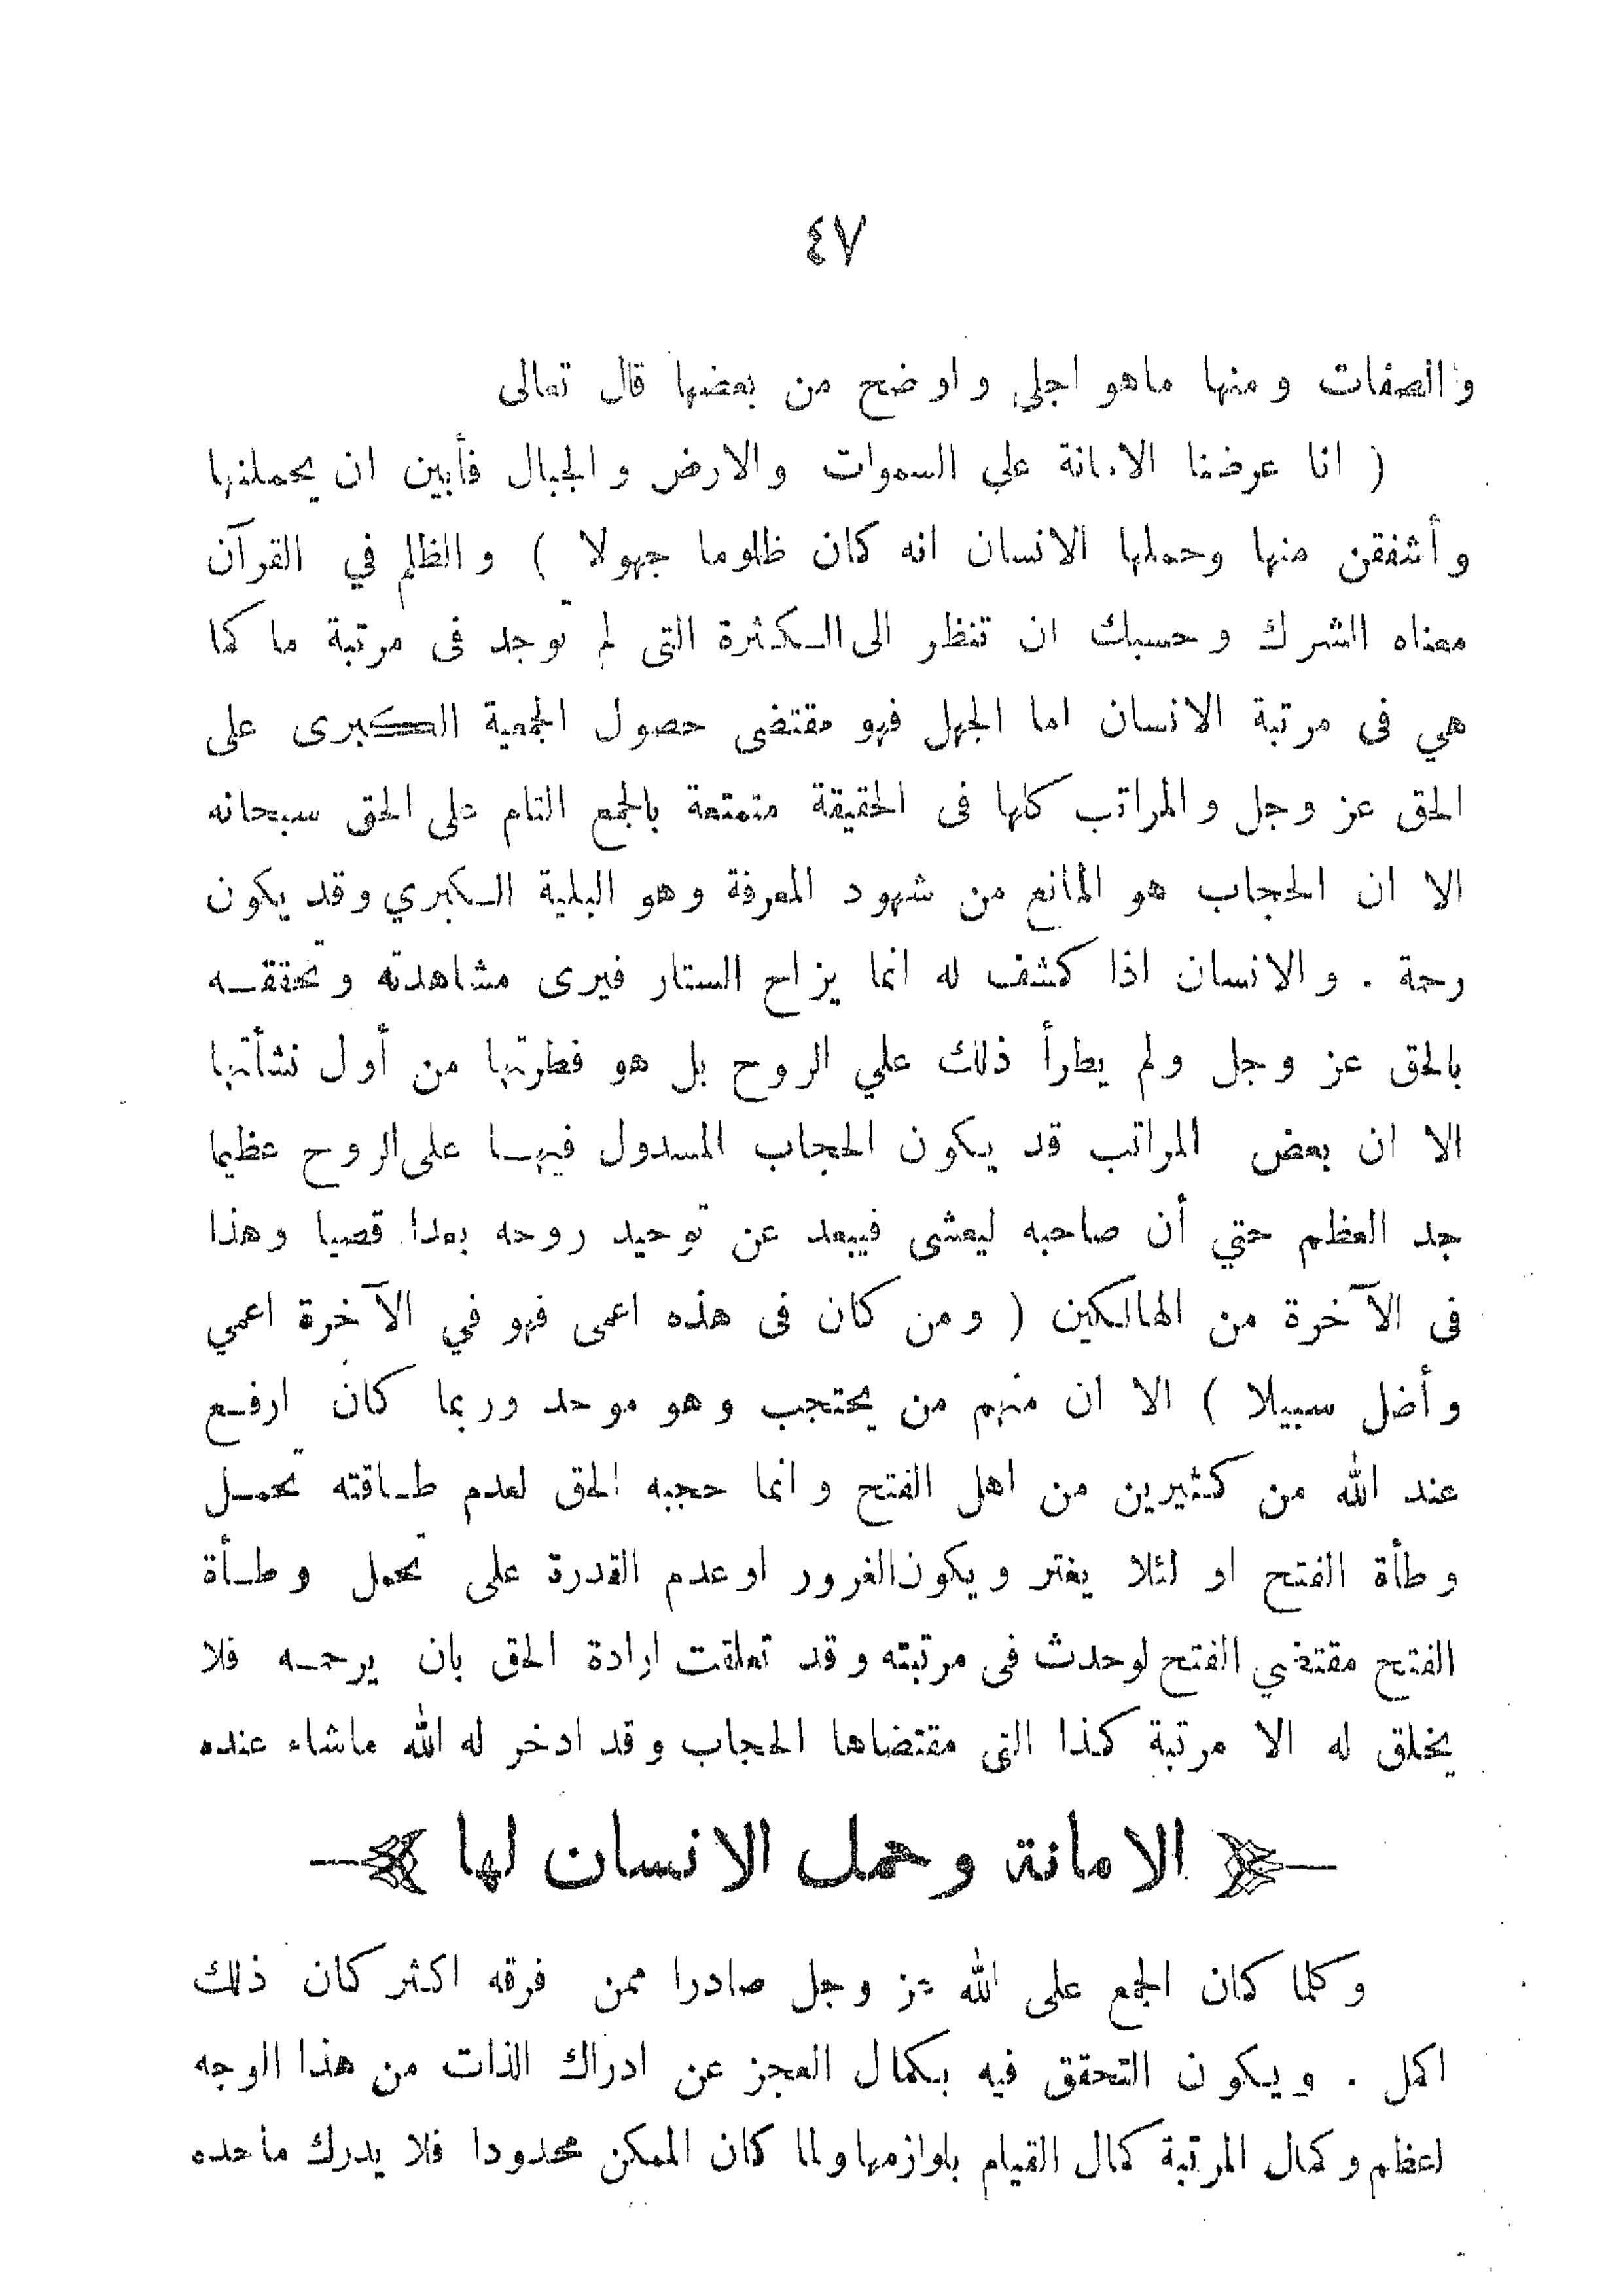 ٤٧
والصفات ومنها ماهو اجلي واوضح من بعضها قال تعالى
( انا عرضنا الامانة علي السموات والارض والجبال فأبين ان يحملنها
وأشفقن منها وحملها الانسان انه كان ظلوما جهولا ) والظلم في القرآن
معناه الشرك وحسبك ان تنظر الى الكثرة التى لم توجد فى مرتبة ما كما
هي فى مرتبة الانسان اما الجهل فهو مقتضى حصول الجمعية الكبرى على
الحق عز وجل والمراتب كلها فى الحقيقة متمتعة بالجمع التام على الحق سبحانه
الا ان الحجاب هو المانع من شهود المعرفة وهو البلية الكبري وقد يكون
رحمة . والانسان اذا كشف له انما يزاح الستار فيرى مشاهدته وتحققه
بالحق عز وجل ولم يطرأ ذلك علي الروح بل هو فطرتها من أول نشأتها
الا ان بعض المراتب قد يكون الحجاب المسدول فيها على الروح عظيما
جد العظم حتي أن صاحبه ليعشى فيبعد عن توحيد روحه بعدا قصيا وهذا
فى الآخرة من الهالكين ( ومن كان فى هذه اعمى فهو في الآخرة اعمي
وأضل سبيلا ) الا ان منهم من يحتجب وهو موحد وربما كان ارفع
عند الله من كثيرين من اهل الفتح وانما حجبه الحق لعدم طاقته تحمل
وطأة الفتح او لئلا يغتر ويكون الغرور او عدم القدرة على تحمل وطأة
الفتح مقتضي الفتح لوحدث فى مرتبته وقد تعلقت ارادة الحق بان يرحمه فلا
يخلق له الا مرتبة كذا التى مقتضاها الحجاب وقد ادخر له الله ماشاء عنده
الامانة وحمل الانسان لها
وكلما كان الجمع على الله عز وجل صادرا ممن فرقه اكثر كان ذلك
اكمل . ويكون التحقق فيه بكمال العجز عن ادراك الذات من هذا الوجه
اعظم وكمال المرتبة كمال القيام بلوازمها ولما كان الممكن محدودا فلا يدرك ماحده